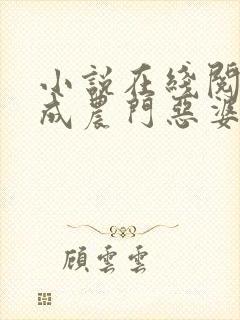 小説在綫閱
成農門惡婆
顧雲雲